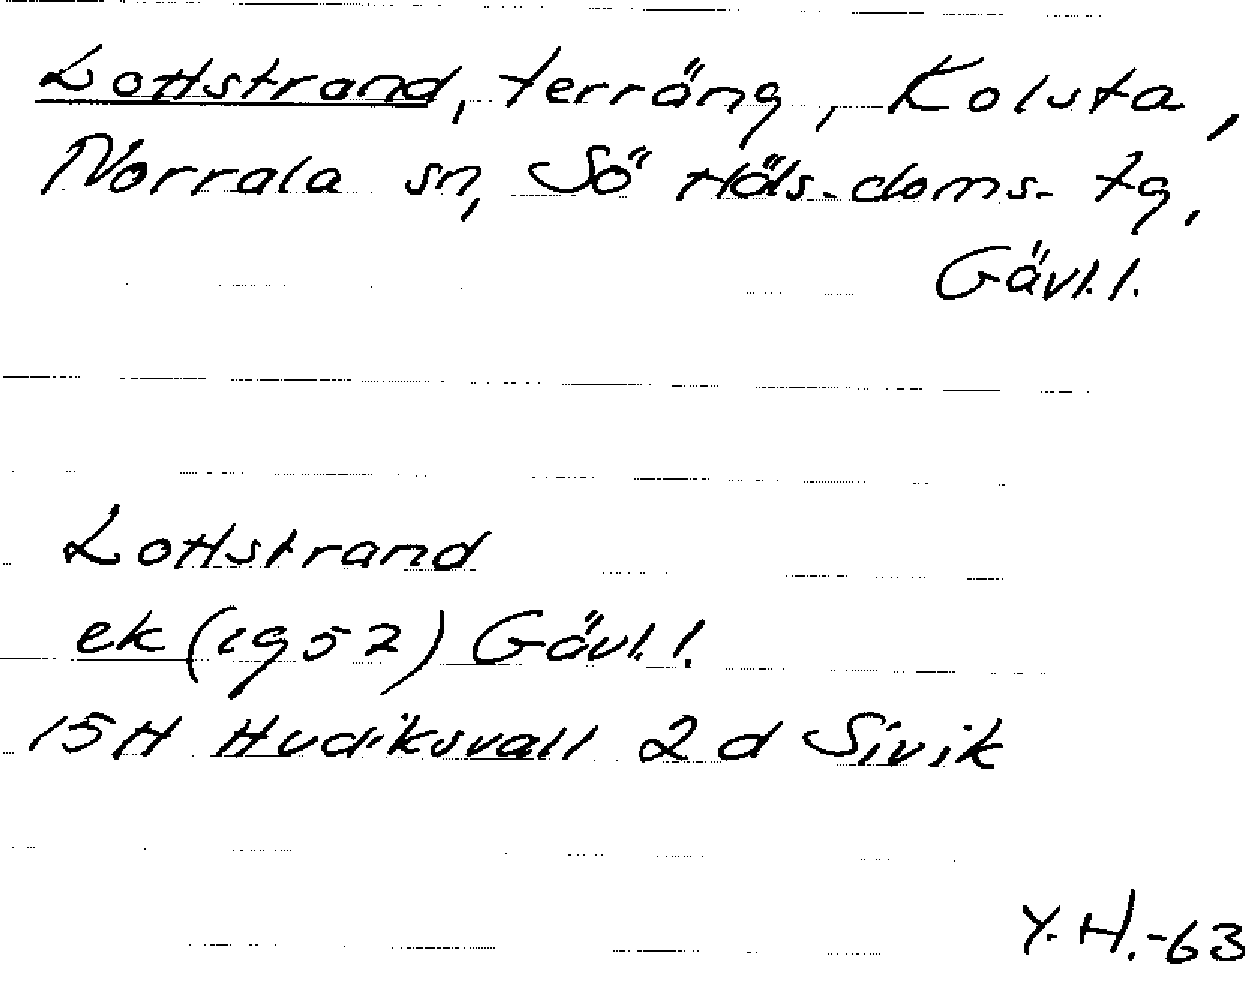 Lottstrand, terräng, Kolsta,
Norrala sn, Sö Häls. doms. tg,
Gävl. l.
Lottstrand
ek (1952) Gävl. l.
15H Hudiksvall 2 d Sivik
Y. H. -63